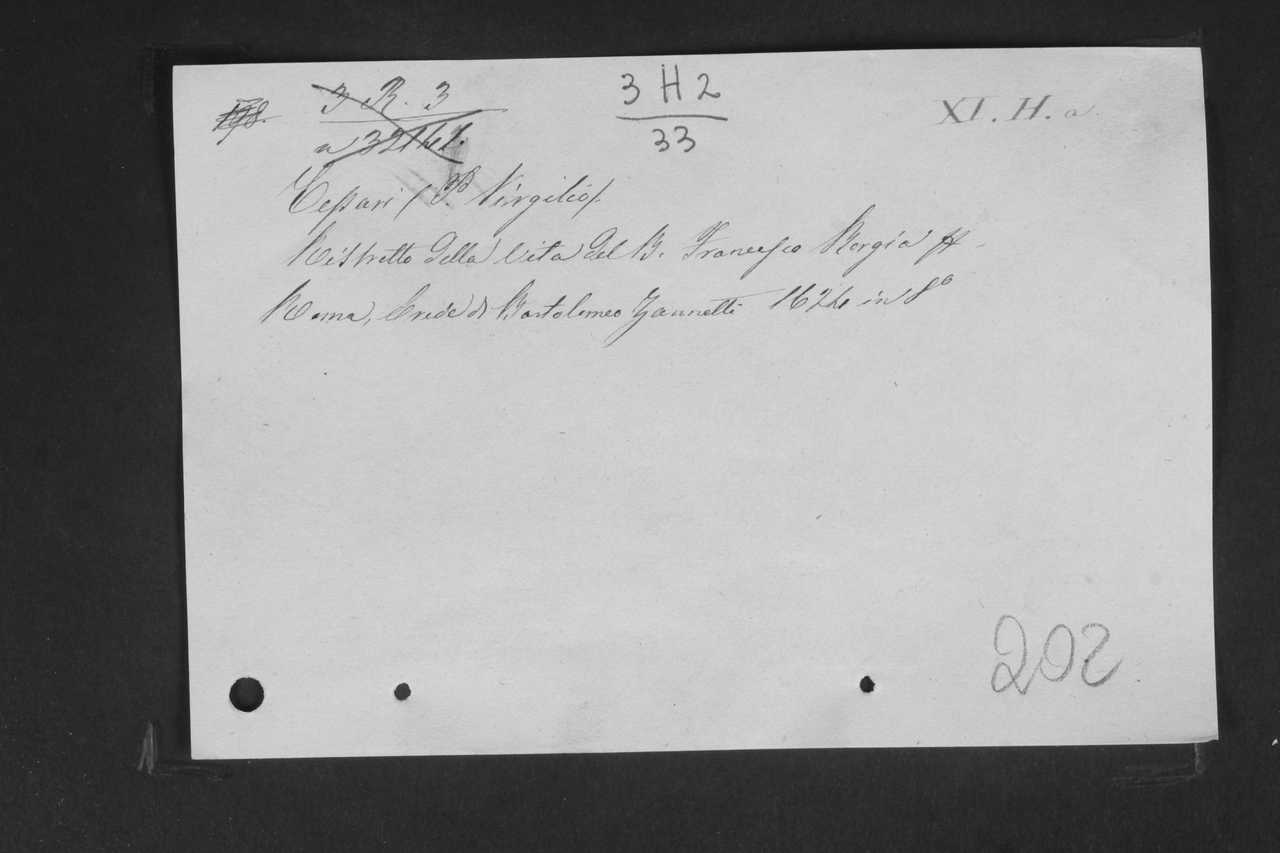 198. 3 R. 3 3 H 2 XI. H. a.
a 32 33
Cepari (P. Virgilio).
Ristretto della vita del B. Francesco Borgia
Roma, Erede di Bartolomeo Zannetti 1624 in 8º
202